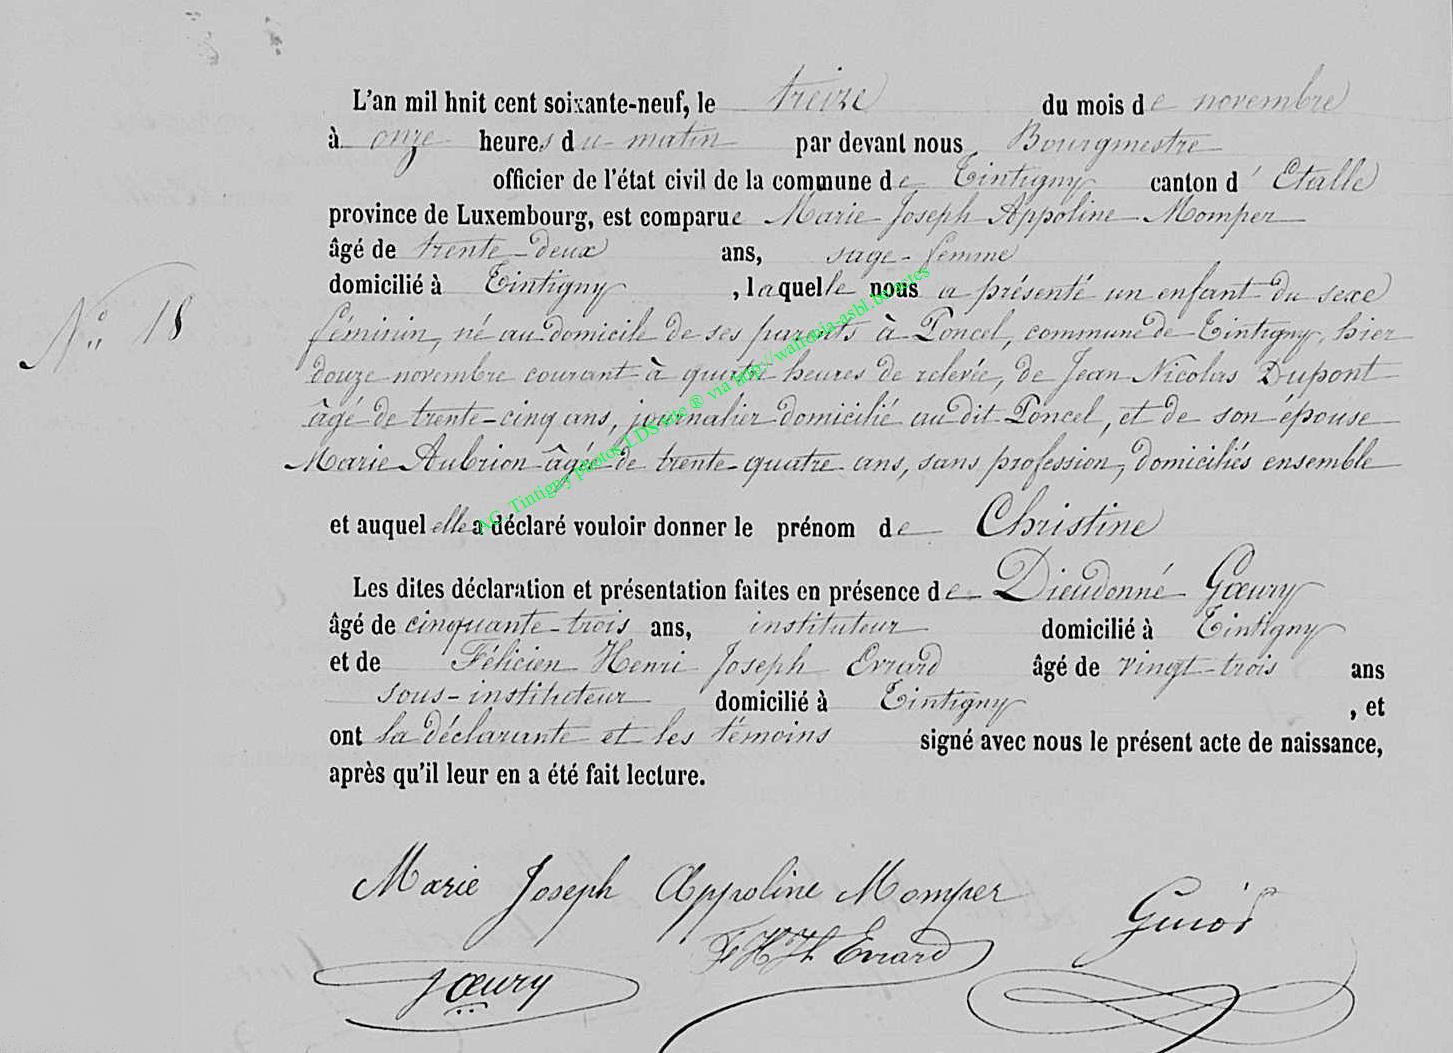 L'an mil hnit cent soixante-neuf, le treize du mois de novembre
à onze heures du matin par devant nous Bourgmestre
officier de l'état civil de la commune de Tintigny canton d'Etalle
province de Luxembourg, est comparue Marie Joseph Appoline Momper
âgé de trente-deux ans, sage-femme
domicilié à Tintigny, laquelle nous a présenté un enfant du sexe
N° 18
féminin, né au domicile de ses parents à Poncel, commune de Tintigny, hier
douze novembre courant à quatre heures de relevée, de Jean Nicolas Dupont
âgé de trente-cinq ans, journalier domicilié au dit Poncel, et de son épouse
Marie Aubrion âgée de trente-quatre ans, sans profession, domiciliés ensemble
AC Tintigny photos LDS site ® via http://wallonia-asbl.be actes
et auquel elle a déclaré vouloir donner le prénom de Christine
Les dites déclaration et présentation faites en présence de Dieudonné Gœury
âgé de cinquante-trois ans, instituteur domicilié à Tintigny
et de Félicien Henri Joseph Evrard âgé de vingt-trois ans
sous-instituteur domicilié à Tintigny, et
ont la déclarante et les témoins signé avec nous le présent acte de naissance,
après qu'il leur en a été fait lecture.
Marie Joseph Appoline Momper
F H J Evrard
Gœury